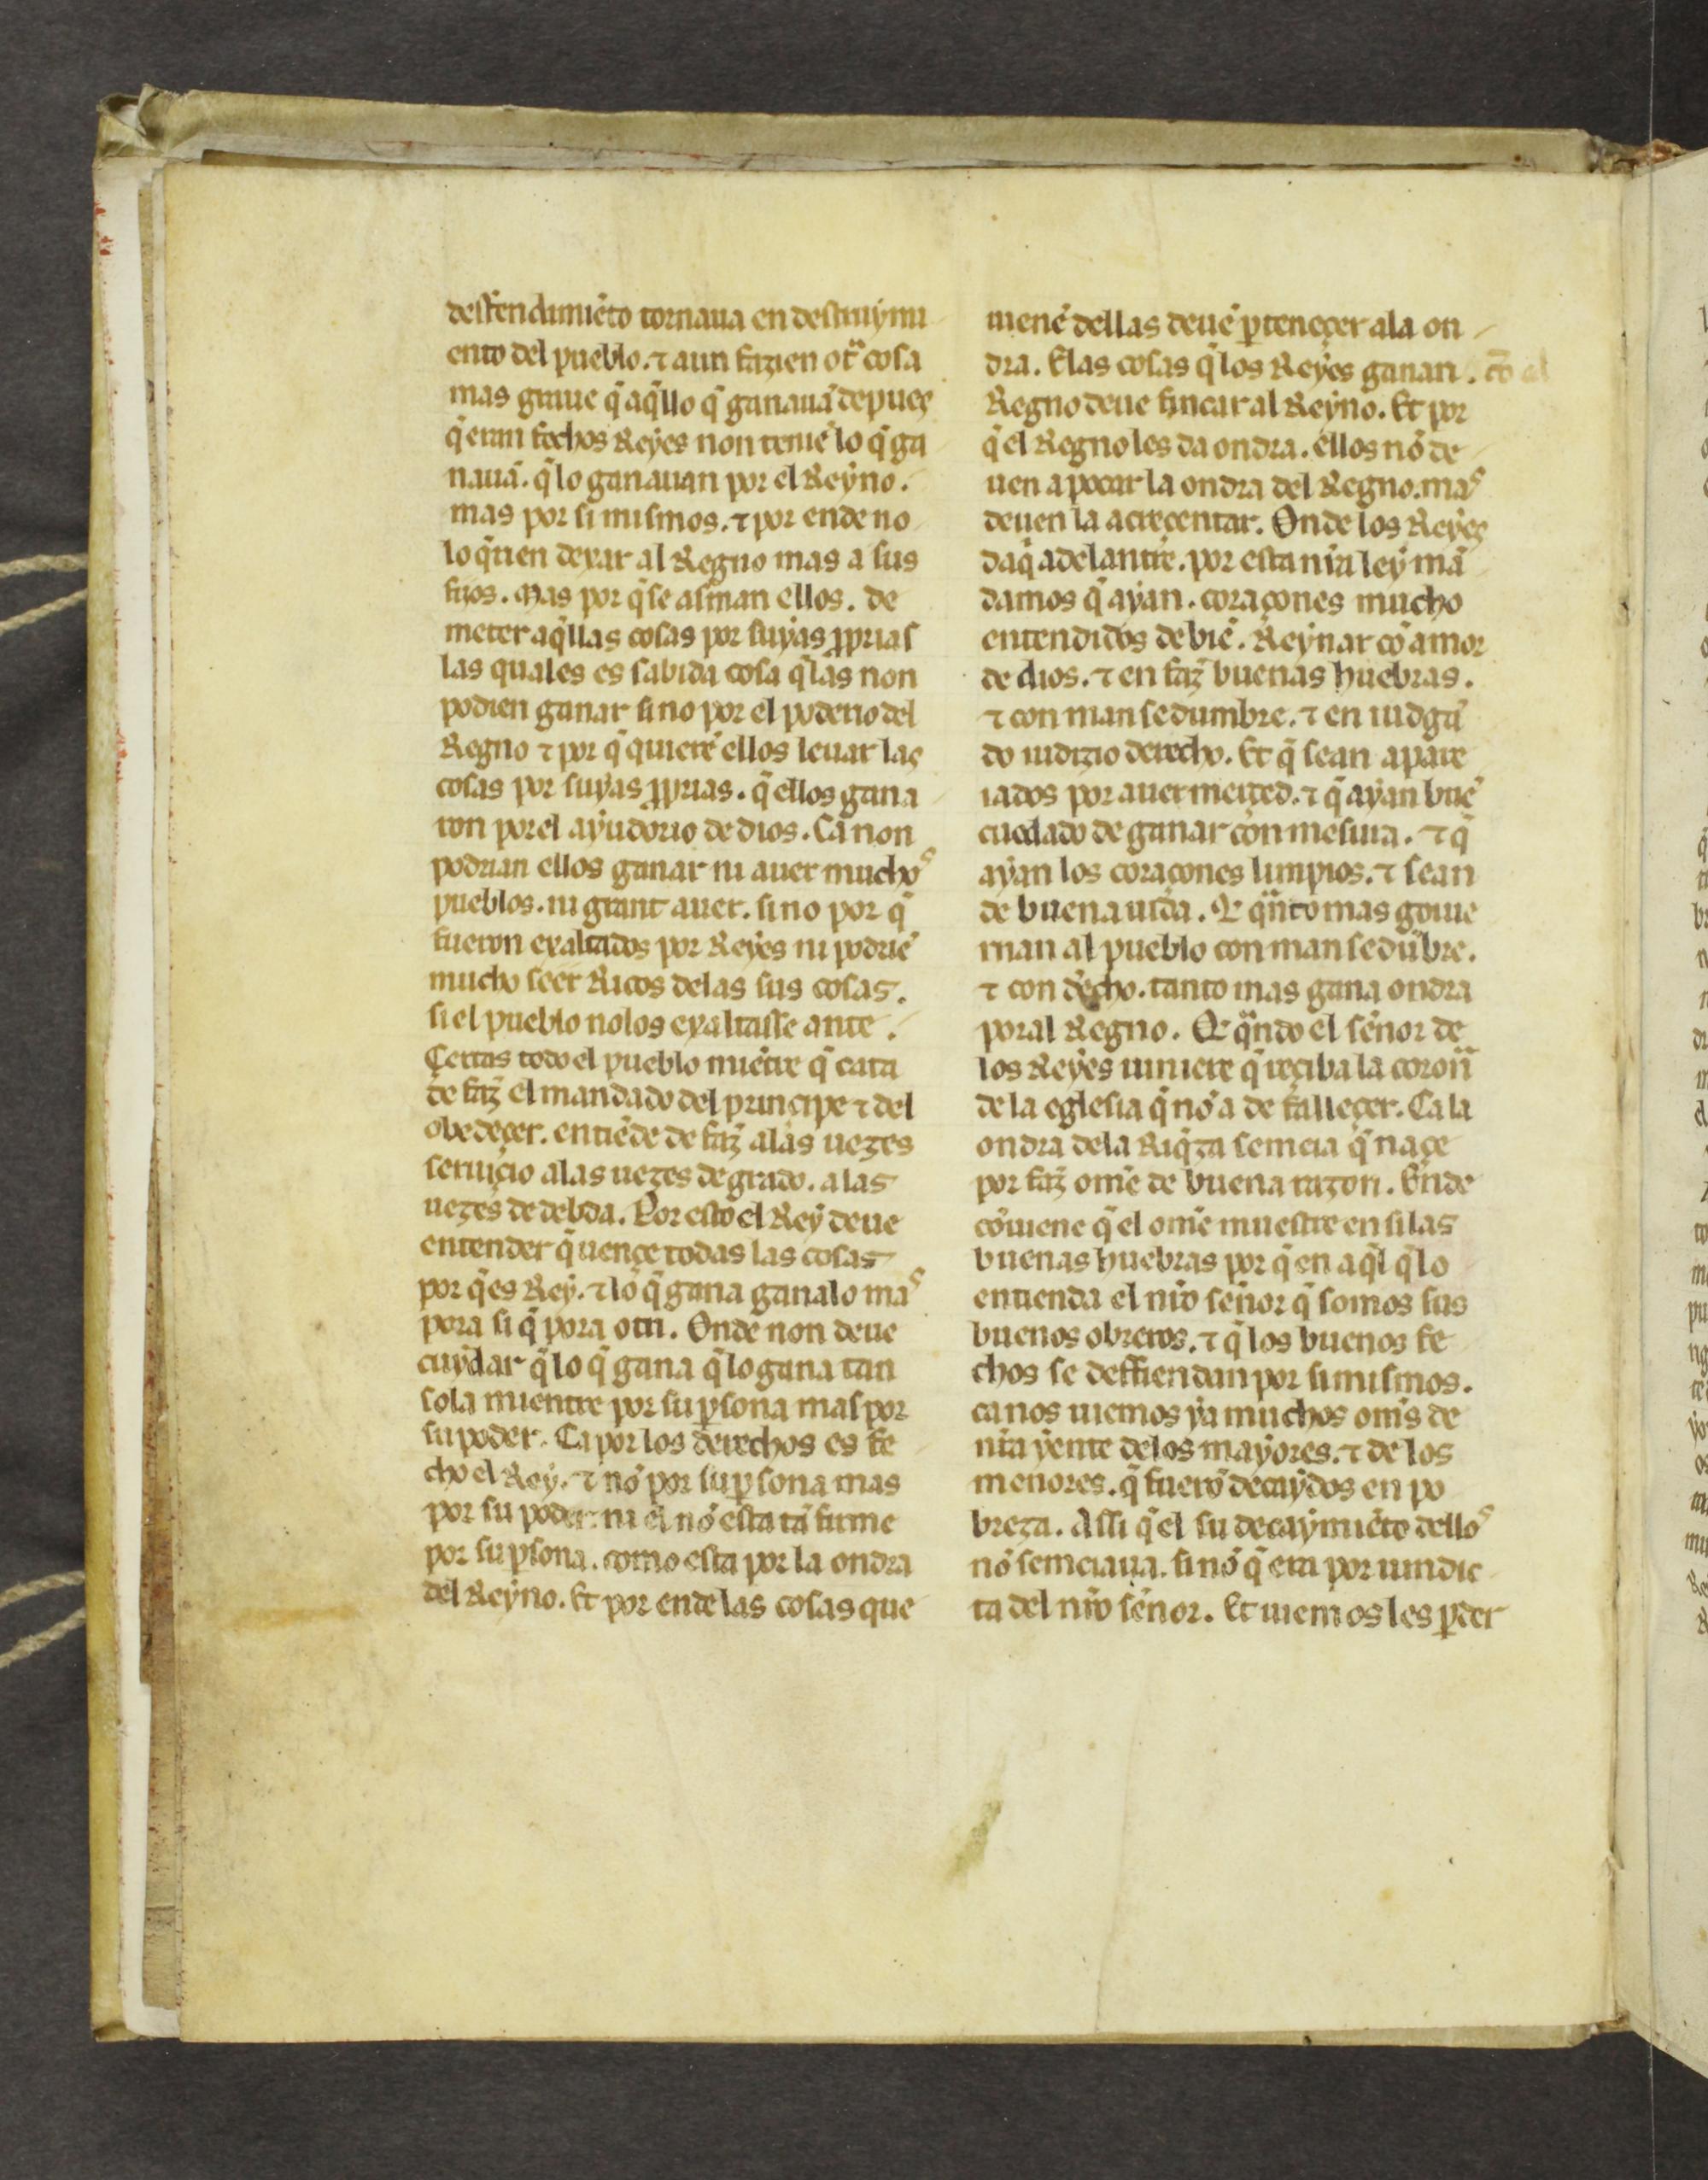 deffendimiẽto tornaua en destruymi
ento del pueblo. ⁊ aun fazien otͣ cosa
mas graue q̃ aq̃llo q̃ ganauã depues
q̃ eran fechos Reyes non teniẽ lo q̃ ga
nauã. q̃ lo ganauan por el Reyno.
mas por si mismos. ⁊ por ende no
lo q̃rien dexar al Regno mas a sus
fijos. Mas por q̃ se asman ellos. de
meter aq̃llas cosas por suyas ꝓprias
las quales es sabida cosa q̃ las non
podien ganar si no por el poderio del
Regno ⁊ por q̃ quierẽ ellos leuar las
cosas por suyas ꝓprias. q̃ ellos gana
ron por el ayudorio de dios. Ca non
podrian ellos ganar ni auer muchoˢ
pueblos. ni grant auer. si no por q̃
fueron exaltados por Reyes ni podriẽ
mucho seer Ricos delas sus cosas.
si el pueblo nolos exaltasse ante.
Çertas todo el pueblo miẽtre q̃ cata
de faz̃ el mandado del prinçipe ⁊ del
obedeçer. entiẽde de faz̃ alas uezes
seruiçio alas uezes de grado. alas
uezes de debda. Por esto el Rey deue
entender q̃ uençe todas las cosas
por q̃ es Rey. ⁊ lo q̃ gana ganalo maˢ
pora si q̃ pora otri. Onde non deue
cuydar q̃ lo q̃ gana q̃ lo gana tan
sola mientre por su ꝑsona mas por
su poder. Ca por los derechos es fe
cho el Rey. ⁊ nõ por su ꝑsona mas
por su poder ni el nõ esta tã firme
por su ꝑsona. como esta por la ondra
del Reyno. Et por ende las cosas que
uienẽ dellas deuẽ ꝑteneçer ala on
dra. E las cosas q̃ los Reyes ganan. cõ el
Regno deue fincar al Reyno. Et por
q̃ el Regno les da ondra. ellos nõ de
uen apocar la ondra del Regno. maˢ
deuen la acreçentar. Onde los Reyes
daq̃ adelantre. por esta nr̃a ley mã
damos q̃ ayan. coraçones mucho
entendidos de biẽ. Reynar cõ amor
de dios. ⁊ en faz̃ buenas huebras.
⁊ con mansedumbre. ⁊ en iudgã
do iudizio derecho. Et q̃ sean apare
iados por auer merçed. ⁊ q̃ ayan buẽ
cuedado de ganar con mesura. ⁊ q̃
ayan los coraçones limpios. ⁊ sean
de buena uida. E qͣnto mas gouie
rnan al pueblo con mansedũbre.
⁊ con der̃cho. tanto mas gana ondra
poral Regno. E qͣndo el sẽnor de
los Reyes uiniere q̃ reçiba la coronͣ
de la eglesia q̃ nõ a de falleçer. Ca la
ondra dela Riq̃za semeia q̃ naçe
por faz̃ omẽ de buena razon. Ende
cõuiene q̃ el omẽ muestre en si las
buenas huebras por q̃ en aq̃l q̃ lo
entienda el nr̃o sẽnor q̃ somos sus
buenos obreros. ⁊ q̃ los buenos fe
chos se deffiendan por si mismos.
ca nos uiemos ya muchos omẽs de
nr̃a yente delos mayores. ⁊ de los
menores. q̃ fuerõ decaydos en po
breza. Assi q̃ el su decaymiẽto delloˢ
nõ semeiaua. si nõ q̃ era por uindic
ta del nr̃o sẽnor. Et uiemos les ꝑder